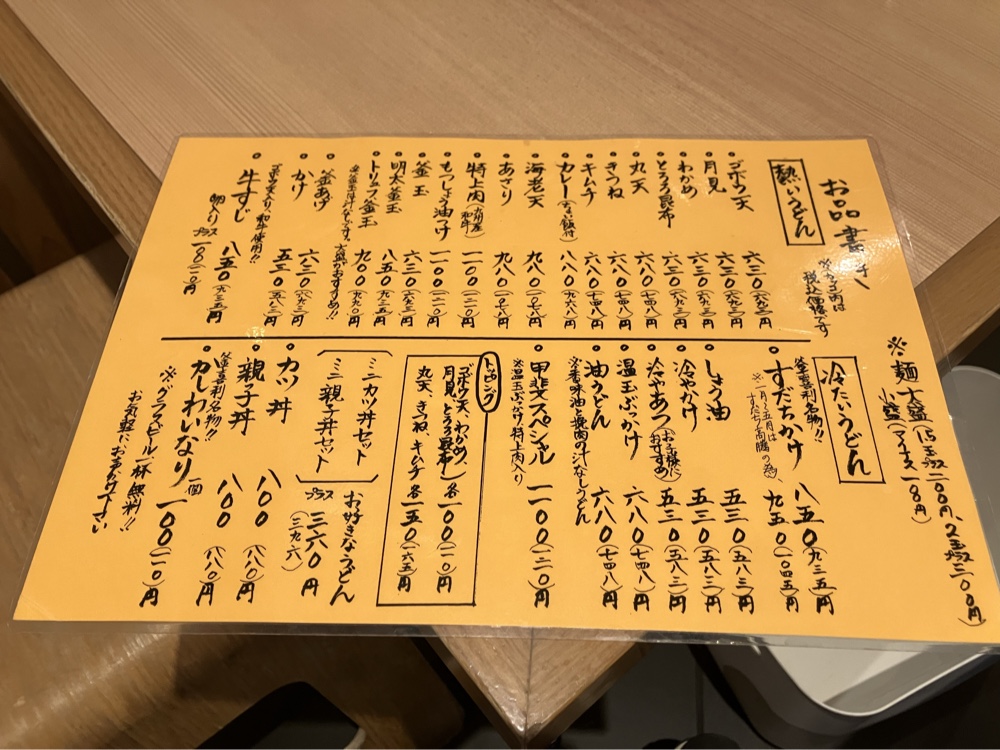 お品書き
※カッコ内は
税込価格です
熱いうどん
ゴボウ天 六三〇(六九三)円
月見 六三〇(六九三)円
わかめ 六三〇(六九三)円
とろろ昆布 六三〇(六九三)円
丸天 六八〇(七四八)円
きつね 六八〇(七四八)円
キムチ 六八〇(七四八)円
カレー 八八〇(九六八)円
海老天 九八〇(一〇七八)円
あさり 九八〇(一〇七八)円
特上肉 一一〇〇(一二一〇)円
もつしょう油つけ 一一〇〇(一二一〇)円
釜玉 六三〇(六九三)円
明太釜玉 八五〇(九三五)円
トリュフ釜玉 九〇〇(九九〇)円
釜あげ 六三〇(六九三)円
かけ 五三〇(五八三)円
ゴボウ天入り 和牛使用!!
牛すじ 八五〇(九三五)円
卵入り プラス 一〇〇(一一〇)円
※麺 大盛(1.5玉プラス二〇〇円、2玉プラス三〇〇円)
小盛(マイナス一〇円)
冷たいうどん
釜喜利名物!!
すだちかけ 八五〇(九三五)円
※一月〜五月は
すだち高騰の為、 九五〇(一〇四五)円
しょう油 五三〇(五八三)円
冷やかけ 五三〇(五八三)円
冷やあつ(お子様におすすめ) 五三〇(五八三)円
温玉ぶっかけ 六八〇(七四八)円
油うどん 六八〇(七四八)円
※香味油と挽肉の汁なしうどん
甲斐スペシャル 一一〇〇(一二一〇)円
※温玉ぶっかけ 特上肉入り
トッピング
ゴボウ天、わかめ
月見、とろろ昆布 各一〇〇(一一〇)円
丸天、きつね、キムチ 各一五〇(一六五)円
ミニカツ丼セット
ミニ親子丼セット
お好きなうどん
プラス 三六〇(三九六)円
カツ丼 八〇〇(八八〇)円
親子丼 八〇〇(八八〇)円
釜喜利名物!!
かしわいなり 一個 一〇〇(一一〇)円
※グラスビール一杯無料!!
お気軽にお声がけ下さい